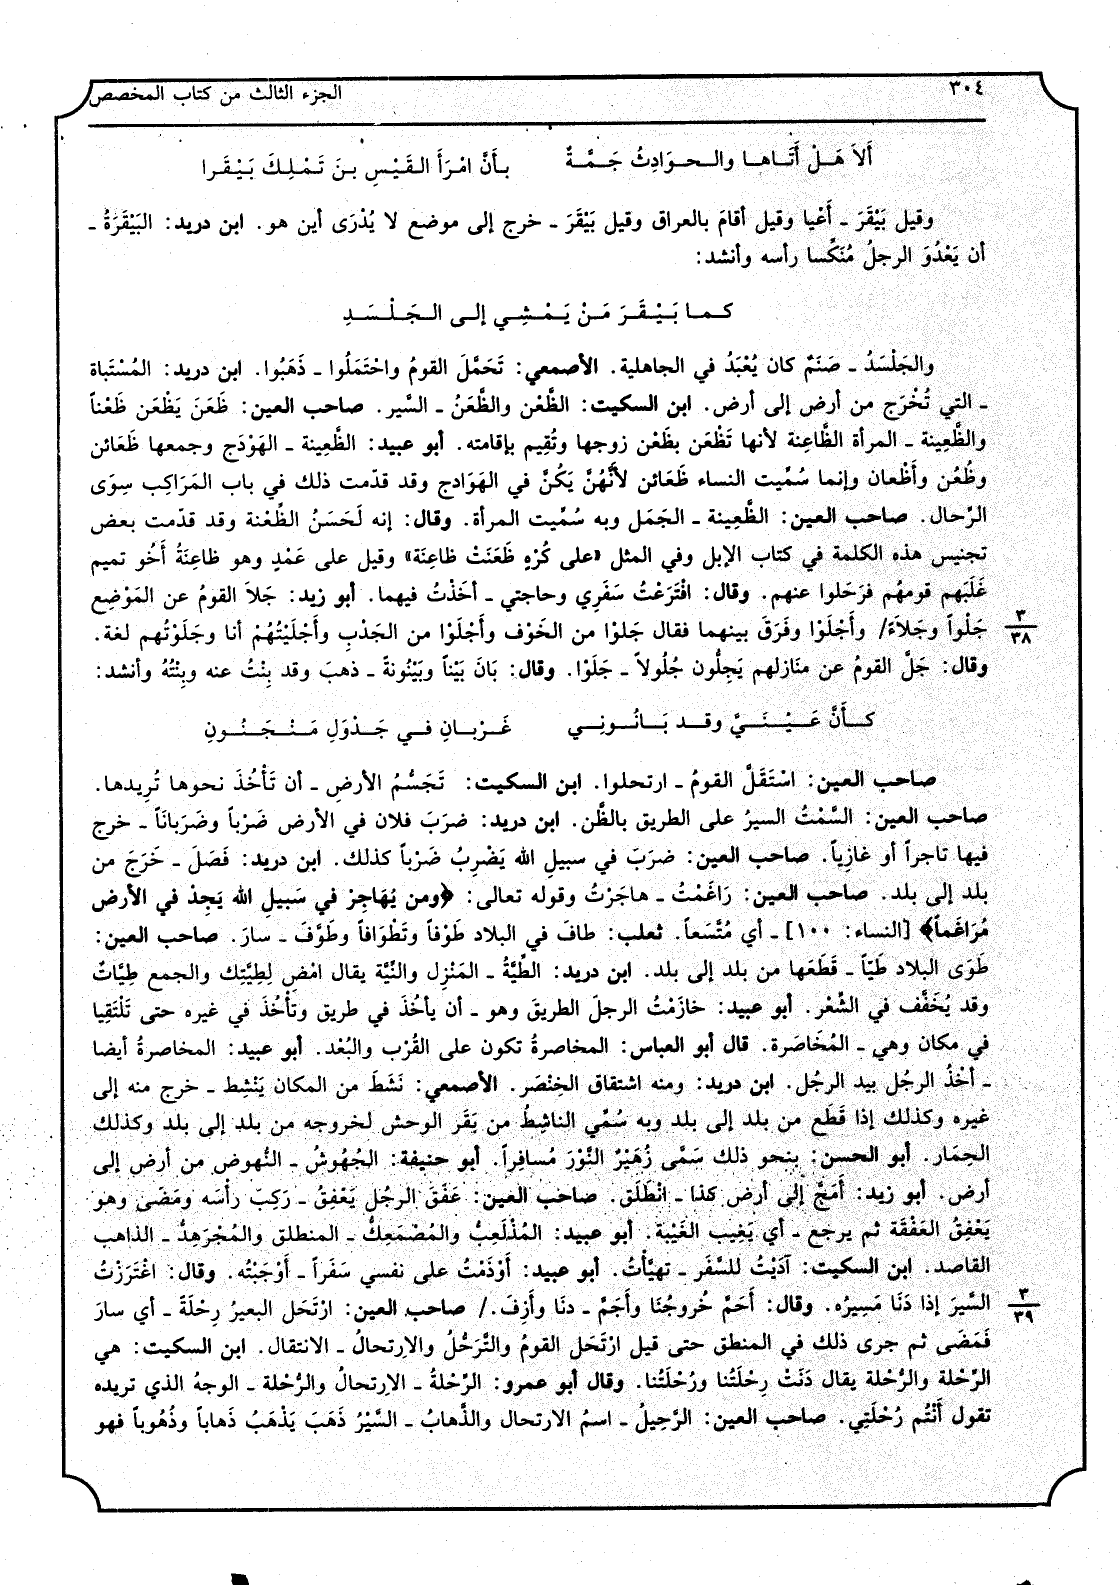 ٣٠٤ الجزء الثالث من كتاب المخصص
أَلاَ هَلْ أَتَاها والحوَادِثُ جَمَّةٌ بأَنَّ امْرَأَ القَيْسِ بنَ تَمْلِكَ بَيْقَرا
وقيل بَيْقَرَ ـ أَعْيا وقيل أقامَ بالعراق وقيل بَيْقَرَ ـ خرج إلى موضع لا يُدْرَى أين هو. ابن دريد: البَيْقَرَةُ ـ
أن يَعْدُوَ الرجلُ مُنَكِّسا رأسه وأنشد:
كما بَيْقَرَ مَنْ يَمْشِي إلى الجَلْسَدِ
والجَلْسَدُ ـ صَنَمٌ كان يُعْبَدُ في الجاهلية. الأصمعي: تَحَمَّلَ القومُ واحْتَمَلُوا ـ ذَهَبُوا. ابن دريد: المُسْتَباة
ـ التي تُخْرَج من أرض إلى أرض. ابن السكيت: الظَّعْن والظَّعَنُ ـ السَّير. صاحب العين: ظَعَنَ يَظْعَن ظَعْناً
والظَّعِينة ـ المرأة الظَّاعِنة لأنها تَظْعَن بظَعْن زوجها وتُقِيم بإقامته. أبو عبيد: الظَّعِينة ـ الهَوْدَج وجمعها ظَعَائن
وظُعُن وأَظْعان وإنما سُمِّيت النساء ظَعَائن لأَنَّهُنَّ يَكُنَّ في الهَوَادج وقد قدّمت ذلك في باب المَرَاكِب سِوَى
الرِّحال. صاحب العين: الظَّعِينة ـ الجَمَل وبه سُمِّيت المرأة. وقال: إنه لَحَسَنُ الظِّعْنة وقد قدّمت بعض
تجنيس هذه الكلمة في كتاب الإبل وفي المثل «على كُرْهٍ ظَعَنَتْ ظاعِنَة» وقيل على عَمْدٍ وهو ظاعِنَةُ أَخُو تميم
غَلَبَهم قومهُم فرَحَلوا عنهم. وقال: افْتَرَعْتُ سَفَرِي وحاجتي ـ أخَذْتُ فيهما. أبو زيد: جَلاَ القومُ عن المَوْضِع
جَلْواً وجَلاَءً/ وأَجْلَوْا وفَرَقَ بينهما فقال جَلوْا من الخَوْف وأَجْلَوْا من الجَدْبِ وأَجْلَيْتُهُمْ أنا وجَلَوْتُهم لغة.
٣
٣٨
وقال: جَلَّ القومُ عن منَازلهم يَجِلُّون جُلُولاً ـ جَلَوْا. وقال: بَانَ بَيْناً وبَيْنُونةً ـ ذهبَ وقد بِنْتُ عنه وبِنْتُهُ وأنشد:
كأَنَّ عَيْنَيَّ وقد بَانُونِي غَرْبانِ في جَدْوَلِ مَنْجَنُونِ
صاحب العين: اسْتَقَلَّ القومُ ـ ارتحلوا. ابن السكيت: تَجَسُّمُ الأرضِ ـ أن تَأْخُذَ نحوها تُرِيدها.
صاحب العين: السَّمْتُ السيرُ على الطريق بالظَّن. ابن دريد: ضرَبَ فلان في الأرض ضَرْباً وضَرَبانَاً ـ خرج
فيها تاجراً أو غازِياً. صاحب العين: ضرَبَ في سبيلِ الله يَضْرِبُ ضَرْباً كذلك. ابن دريد: فَصَلَ ـ خَرَجَ من
بلد إلى بلد. صاحب العين: رَاغَمْتُ ـ هاجَرْتُ وقوله تعالى: ﴿ومن يُهَاجِرْ في سَبيلِ الله يَجِدْ في الأرض
مُرَاغَماً﴾ [النساء: ١٠٠] ـ أي مُتَّسَعاً. ثعلب: طافَ في البلاد طَوْفاً وتَطْوَافاً وطَوَّفَ ـ سارَ. صاحب العين:
طَوَى البلاد طَيّاً ـ قَطَعها من بلد إلى بلد. ابن دريد: الطِّيَّةُ ـ المَنْزِل والنِّيَّة يقال امْضِ لِطِيَّتِك والجمع طِيَّاتٌ
وقد يُخَفَّف في الشِّعْر. أبو عبيد: خازَمْتُ الرجلَ الطريقَ وهو ـ أنْ يأخُذَ في طريق وتأْخُذَ في غيره حتى تَلْتَقِيا
في مكان وهي ـ المُخَاصَرة. قال أبو العباس: المخاصرةُ تكون على القُرْب والبُعْد. أبو عبيد: المخاصرةُ أيضا
ـ أخْذُ الرجُل بيد الرجُل. ابن دريد: ومنه اشتقاق الخِنْصَر. الأصمعي: نَشَطَ من المكان يَنْشِط ـ خرج منه إلى
غيره وكذلك إذا قَطَع من بلد إلى بلد وبه سُمِّي الناشِطُ من بَقَر الوحش لخروجه من بلد إلى بلد وكذلك
الحِمَار. أبو الحسن: بنحو ذلك سَمَّى زُهَيْرٌ الثَّوْرَ مُسافِراً. أبو حنيفة: الجُهُوشُ ـ النُّهوض من أرض إلى
أرض. أبو زيد: أَمَجَّ إلى أرض كذا ـ انْطَلَق. صاحب العين: عَفَقَ الرجُل يَعْفِقُ ـ رَكِبَ رأْسَه ومَضَى وهو
يَعْفِقُ العَفْقَة ثم يرجع ـ أي يَغِيب الغَيْبة. أبو عبيد: المُذْلَعِبُّ والمُصْمَعِكُّ ـ المنطلق والمُجْرَهِدُّ ـ الذاهب
القاصد. ابن السكيت: آدَيْتُ للسَّفَر ـ تهيَّأتُ. أبو عبيد: أَوْذَمْتُ على نفسي سَفَراً ـ أَوْجَبْتُه. وقال: اغْتَرَزْتُ
السَّيرَ إذا دَنَا مَسِيرُه. وقال: أَحَمَّ خُروجُنَا وأَجَمَّ ـ دنَا وأَزِفَ./ صاحب العين: ارْتَحَل البعيرُ رِحْلَةً ـ أي سارَ
٣
٣٩
فَمَضَى ثم جرى ذلك في المنطق حتى قيل ارْتَحَل القومُ والتَّرَحُّلُ والاِرتحالُ ـ الانتقال. ابن السكيت: هي
الرِّحْلة والرُّحْلة يقال دَنَتْ رِحْلَتُنا ورُحْلَتُنا. وقال أبو عمرو: الرِّحْلةُ ـ الاِرتحالُ والرُّحْلة ـ الوجهُ الذي تريده
تقول أَنْتُم رُحْلَتِي. صاحب العين: الرَّحِيلُ ـ اسمُ الارتحال والذَّهابُ ـ السَّيْرُ ذَهَبَ يَذْهَبُ ذَهاباً وذُهُوباً فهو